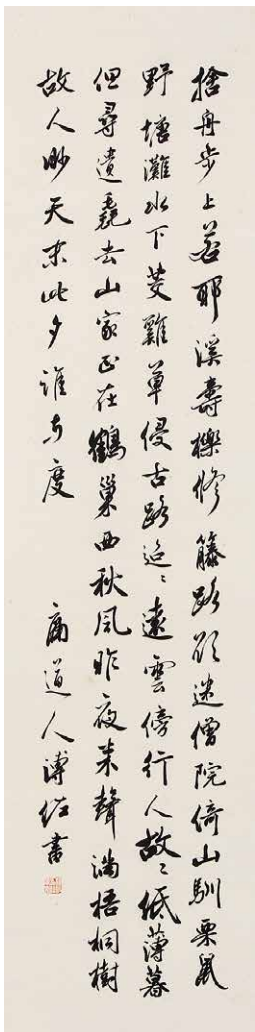 捨舟步上若耶溪壽櫟修藤路欲迷僧院倚山馴栗鼠
野塘灘水下菱雞草侵古路迢〻遠雲傍行人故〻低薄暮
但尋遺毳去山家正在鶴巢西秋風昨夜來聲滿梧桐樹
故人眇天末此夕誰与度
庸道人溥佐書